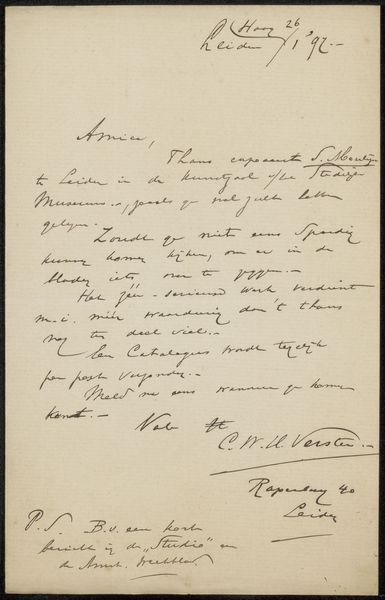 Leiden 26/1 '97.–
Amice,
Thans exposeert S. Moulijn
te Leiden in de kunstzaal v/he Stedelijk
Museum –, zooals ge wel zult hebben
gelezen.
Zoudt ge niet eens spoedig
kunnen komen kijken, om er in de
bladen iets over te zeggen.–
Het werk verdient
m.i. méér waardeering dan 't thans
nog ten deel viel.–
Een Catalogus wordt tegelijk
per post verzonden.–
Meld me eens wanneer ge komen
kunt.–
Vale
C. W. H. Verster.–
Rapenburg 40
Leiden
P.S. B.v. een kort
bericht in de „Studio" en
de Amst. Weekblad